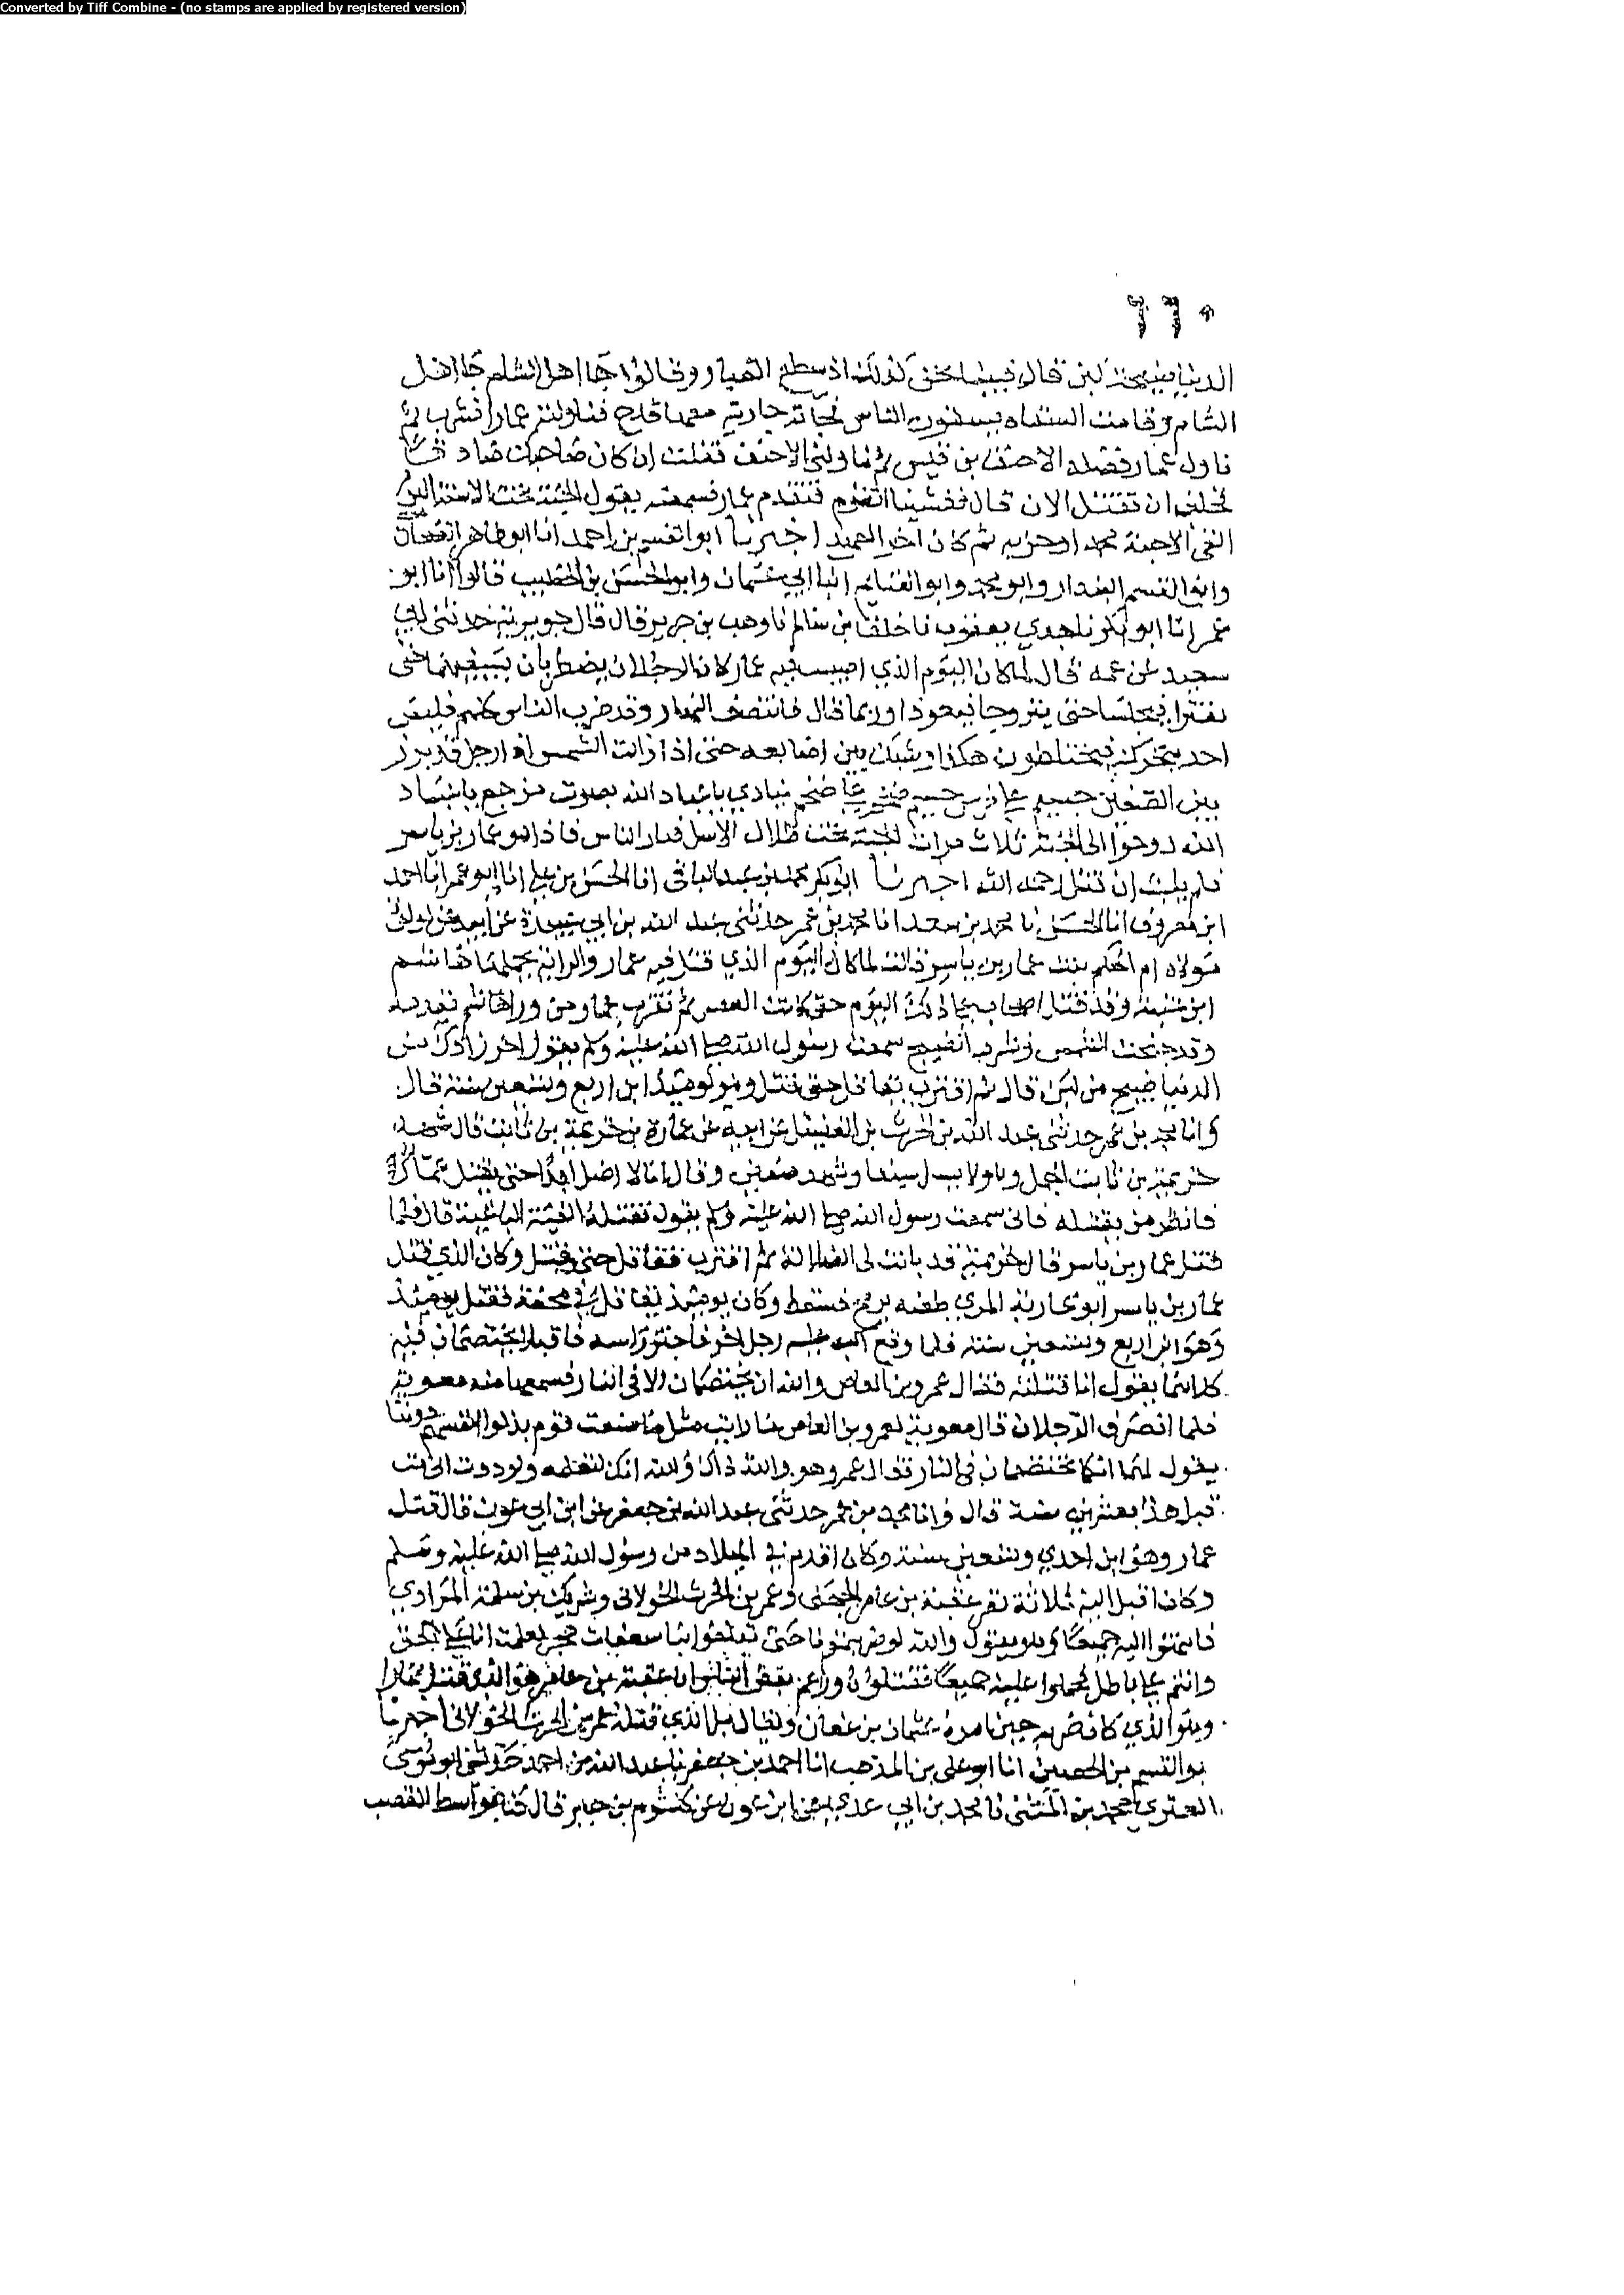 Converted by Tiff Combine - (no stamps are applied by registered version)
٦٦٠
الدنيا صيحة لبن قال فبينما نحن كذلك اذ سطع الغبار وقالوا جا اهل الشام جا اهل
الشام وقامت السقاه يسقون الناس فجاته جاريته معها قدح فناولته عمارا فشرب ثم
ناول عمار فضله الاحنف بن قيس ثم ناولني الاحنف فقلت ان كان صاحبك صادقا
ان تقتل الان قال فغشينا القوم فتقدم عمار فسمعته يقول الجنة تحت الاسنة اليوم
القى الاحبة محمد اوحزبه ثم كان اخر العهد اخبرنا ابو القسم بن احمد انا ابو طاهر
وابو القسم القصار وابو محمد وابو الغنايم ابنا ابي عثمان وابو الحسن بن الخطيب قالوا انا ابو
عمر انا ابو بكر نا جدي يعقوب نا خلف بن سالم نا وهب بن جرير قال قال جويرية حدثني ابي
سعيد عن عمه قال لما كان اليوم الذي اصيب فيه عمار كانا الرجلان يضطربان بسيفيهما حتى
يفترا فيجلسا حتى يتروحا فيعودا وربما قال فانتصف النهار وقد ضرب الناس كلهم فليس
احد يتحرك يختلطون هكذا وشبك بين اصابعه حتى اذا زالت الشمس اذا رجل قد برز
بين الصفين جسيم على فرس جسيم ضخم على ضخم ينادي يا عباد الله بصوت موجع يا عباد
الله روحوا الى الجنة ثلاث مرات الجنة تحت ظلال الاسل فدار الناس فاذا هو عمار بن ياسر
فلم يلبث ان قتل رحمه الله اخبرنا ابو بكر محمد بن عبد الباقي انا الحسن بن علي انا ابو عمر انا احمد
ابن معروف انا الحسين نا محمد بن سعد انا محمد بن عمر حدثني عبد الله بن ابي عبيدة عن ابيه عن لولوة
مولاة ام الحكم بنت عمار بن ياسر قالت لما كان اليوم الذي قتل فيه عمار والراية يحملها هاشم
ابن عتبة وقد قتل اصحاب علي ذلك اليوم حتى كانت العصر ثم تقرب عمار من ورا هاشم يقدمه
وقد جنحت الشمس للغروب سمعت رسول الله صلى الله عليه وسلم يقول اخر زادك من
الدنيا ضيح من لبن قال ثم اقترب فقاتل حتى قتل وهو يومئذ ابن اربع وتسعين سنة قال
وانا محمد بن عمر حدثني عبد الله بن الحرث بن الفضيل عن ابيه عن عمارة بن خزيمة بن ثابت قال شهد
خزيمة بن ثابت الجمل وهو لا يسل سيفا وشهد صفين وقال انا لا اصل ابدا حتى يقتل عمار
فانظر من يقتله فاني سمعت رسول الله صلى الله عليه وسلم يقول تقتله الفئة الباغية قال فلما
قتل عمار بن ياسر قال خزيمة قد بانت لي الضلالة ثم اقترب فقاتل حتى قتل وكان الذي قتل
عمار بن ياسر ابو غادية المري طعنه برمح فسقط وكان يومئذ يقاتل في محفة فقتل يومئذ
وهو ابن اربع وتسعين سنة فلما وقع اكب عليه رجل اخر فاحتز راسه فاقبلا يختصمان فيه
كلاهما يقول انا قتلته فقال عمرو بن العاص والله ان يختصمان الا في النار فسمعها منه معوية
فلما انصرف الرجلان قال معوية لعمرو بن العاص ما رايت مثل ما صنعت قوم بذلوا انفسهم دوننا
يقول لهما انكما تختصمان في النار فقال عمرو هو والله ذاك والله انك لتعلمه ولوددت اني مت
قبل هذا بعشرين سنة قال وانا محمد بن عمر حدثني عبد الله بن جعفر عن ابن ابي عون قال قتل
عمار وهو ابن احدى وتسعين سنة وكان اقدم في الميلاد من رسول الله صلى الله عليه وسلم
وكان اقبل اليه ثلاثة نفر عقبة بن عامر الجهني وعمر بن الحرث الخولاني وشريك بن سلمة المرادي
فانتهوا اليه جميعا وهو يقول والله لو ضربتمونا حتى تبلغوا بنا سعفات هجر لعلمت انا على الحق
وانتم على باطل فحملوا عليه جميعا فقتلوه وزعم بعض الناس ان عقبة بن عامر هو الذي قتل عمارا
وهو الذي كان ضربه حين امره عثمان بن عفان ويقال بل الذي قتله عمر بن الحرث الخولاني اخبرنا
بو القسم بن الحصين انا ابو علي بن المذهب انا احمد بن جعفر نا عبد الله بن احمد حدثني ابو موسى
العنزي محمد بن المثنى نا محمد بن ابي عدي عن ابن عون عن كلثوم بن جبر قال كنا بواسط القصب